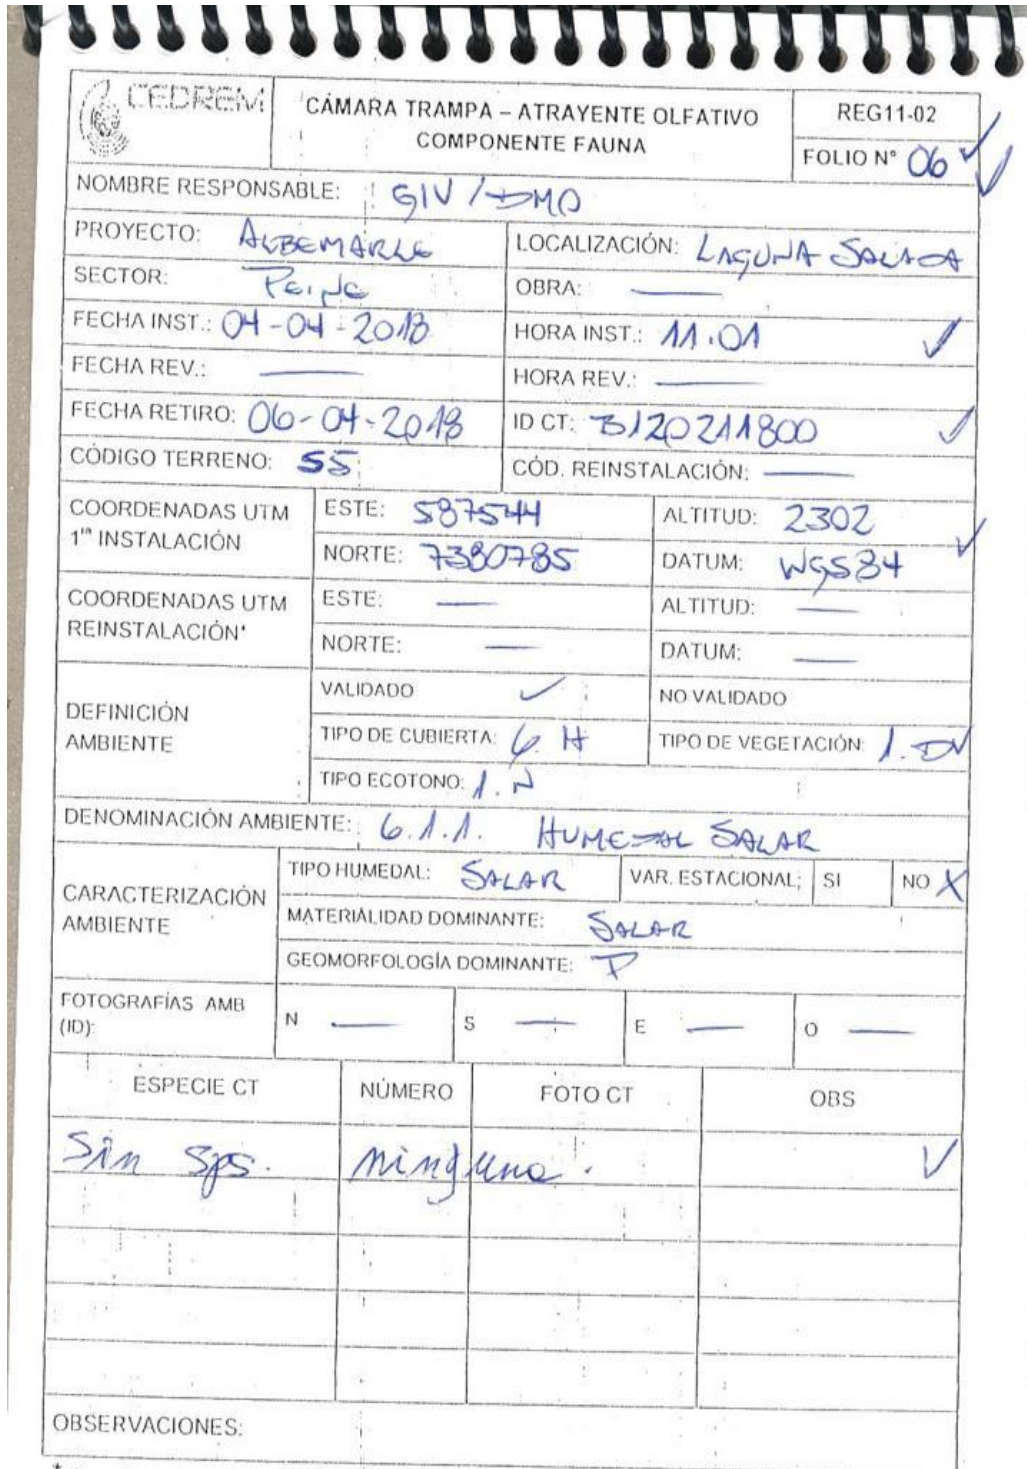 CEDREM
CÁMARA TRAMPA – ATRAYENTE OLFATIVO
COMPONENTE FAUNA
REG11-02
FOLIO N° 06 ✓
NOMBRE RESPONSABLE: GIV / DMO
PROYECTO: ALBEMARLE
LOCALIZACIÓN: LAGUNA SALADA
SECTOR: Peine
OBRA: —
FECHA INST.: 04-04-2018
HORA INST.: 11.01 ✓
FECHA REV.: —
HORA REV.: —
FECHA RETIRO: 06-04-2018
ID CT: B120211800 ✓
CÓDIGO TERRENO: S5
CÓD. REINSTALACIÓN: —
COORDENADAS UTM
1ra INSTALACIÓN
ESTE: 587544
ALTITUD: 2302
NORTE: 7380785
DATUM: WGS84 ✓
COORDENADAS UTM
REINSTALACIÓN*
ESTE: —
ALTITUD: —
NORTE: —
DATUM: —
DEFINICIÓN
AMBIENTE
VALIDADO ✓
NO VALIDADO
TIPO DE CUBIERTA: 6. H
TIPO DE VEGETACIÓN: 1. DV
TIPO ECOTONO: 1. N
DENOMINACIÓN AMBIENTE: 6.1.1. HUMEDAL SALAR
CARACTERIZACIÓN
AMBIENTE
TIPO HUMEDAL: SALAR
VAR. ESTACIONAL: SI NO X
MATERIALIDAD DOMINANTE: SALAR
GEOMORFOLOGÍA DOMINANTE: P
FOTOGRAFÍAS AMB
(ID):
N — S — E — O —
ESPECIE CT NÚMERO FOTO CT OBS
Sin sps. ninguna. ✓
OBSERVACIONES: